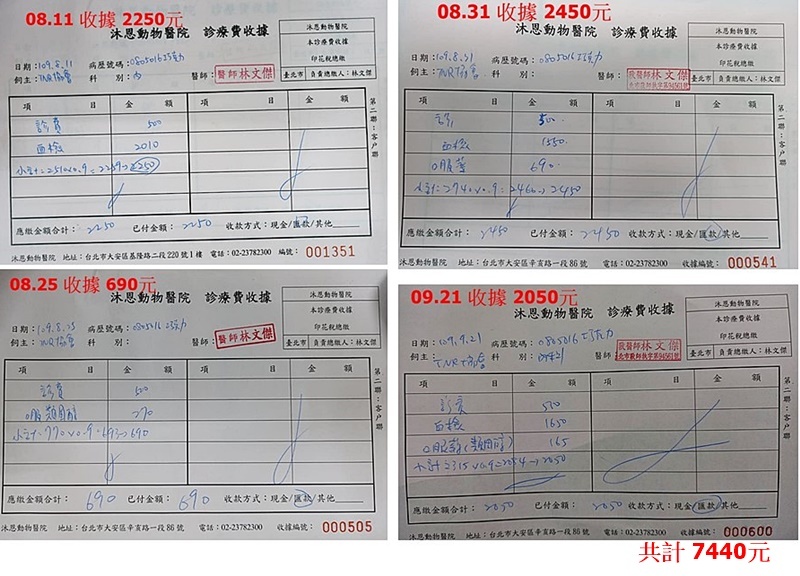 08.11 收據 2250元
沐恩動物醫院 診療費收據
沐恩動物醫院
本診療費收據
印花稅總繳
臺北市 負責總繳人：林文傑
日期：109.8.11 病歷號碼：0805016巧克力
飼主：TNR協會 科 別：內 醫師：醫師林文傑
項 目 金 額 項 目 金 額
診費 500
血檢 2010
小計=2510×0.9=2259→2250
應繳金額合計：2250 已付金額：2250 收款方式：現金/匯款/其他
第二聯：客戶聯
沐恩動物醫院 地址：台北市大安區基隆路二段220號1樓 電話：02-23782300 編號：001351
08.31 收據 2450元
沐恩動物醫院 診療費收據
沐恩動物醫院
本診療費收據
印花稅總繳
臺北市 負責總繳人：林文傑
日期：109.8.31 病歷號碼：0805016巧克力
飼主：TNR協會 科 別： 醫師：林文傑
項 目 金 額 項 目 金 額
診 500
血檢 1550
口服藥 690
小計=2740×0.9=2466→2450
應繳金額合計：2450 已付金額：2450 收款方式：現金/匯款/其他
第二聯：客戶聯
沐恩動物醫院 地址：台北市大安區辛亥路一段86號 電話：02-23782300 收據編號：000541
08.25 收據 690元
沐恩動物醫院 診療費收據
沐恩動物醫院
本診療費收據
印花稅總繳
臺北市 負責總繳人：林文傑
日期：109.8.25 病歷號碼：0805016巧克力
飼主：TNR協會 科 別： 醫師：醫師林文傑
項 目 金 額 項 目 金 額
診費 500
口服類固醇 270
小計=770×0.9=693→690
應繳金額合計：690 已付金額：690 收款方式：現金/匯款/其他
第二聯：客戶聯
沐恩動物醫院 地址：台北市大安區辛亥路一段86號 電話：02-23782300 收據編號：000505
09.21 收據 2050元
沐恩動物醫院 診療費收據
沐恩動物醫院
本診療費收據
印花稅總繳
臺北市 負責總繳人：林文傑
日期：109.9.21 病歷號碼：0805016巧克力
飼主：TNR協會 科 別： 醫師：林文傑
項 目 金 額 項 目 金 額
診費 500
血檢 1650
口服藥(類固醇) 165
小計2315×0.9=2084→2050
應繳金額合計：2050 已付金額：2050 收款方式：現金/匯款/其他
第二聯：客戶聯
沐恩動物醫院 地址：台北市大安區辛亥路一段86號 電話：02-23782300 收據編號：000600
共計 7440元